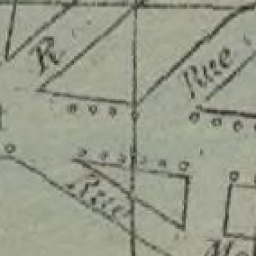 R
Rue
Rue